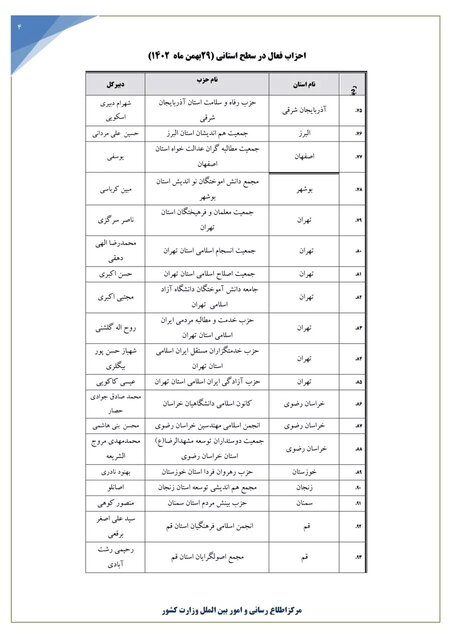 ۴
احزاب فعال در سطح استانی (۲۹بهمن ماه ۱۴۰۲)
ردیف نام استان نام حزب دبیرکل
۷۵. آذربایجان شرقی حزب رفاه و سلامت استان آذربایجان شهرام دبیری
شرقی اسکویی
۷۶. البرز جمعیت هم اندیشان استان البرز حسین علی مردانی
۷۷. اصفهان جمعیت مطالبه گران عدالت خواه استان یوسفی
اصفهان
۷۸. بوشهر مجمع دانش اموختگان نو اندیش استان مبین کرباسی
بوشهر
۷۹. تهران جمعیت معلمان و فرهیختگان استان ناصر سرگزی
تهران
۸۰. تهران جمعیت انسجام اسلامی استان تهران محمدرضا الهی
دهقی
۸۱. تهران جمعیت اصلاح اسلامی استان تهران حسن اکبری
۸۲. تهران جامعه دانش آموختگان دانشگاه آزاد مجتبی اکبری
اسلامی تهران
۸۳. تهران حزب خدمت و مطالبه مردمی ایران روح اله گلشنی
اسلامی استان تهران
۸۴. تهران حزب خدمتگزاران مستقل ایران اسلامی شهباز حسن پور
استان تهران بیگلری
۸۵. تهران حزب آزادگی ایران اسلامی استان تهران عیسی کاکویی
۸۶. خراسان رضوی کانون اسلامی دانشگاهیان خراسان محمد صادق جوادی
حصار
۸۷. خراسان رضوی انجمن اسلامی مهندسین خراسان رضوی محسن بنی هاشمی
۸۸. خراسان رضوی جمعیت دوستداران توسعه مشهدالرضا(ع) محمدمهدی مروج
استان خراسان رضوی الشریعه
۸۹. خوزستان حزب رهروان فردا استان خوزستان بهنود نادری
۹۰. زنجان مجمع هم اندیشی توسعه استان زنجان اصانلو
۹۱. سمنان حزب بینش مردم استان سمنان منصور کوهی
۹۲. قم انجمن اسلامی فرهنگیان استان قم سید علی اصغر
برقعی
۹۳. قم مجمع اصولگرایان استان قم رحیمی رشت
آبادی
مرکزاطلاع رسانی و امور بین الملل وزارت کشور